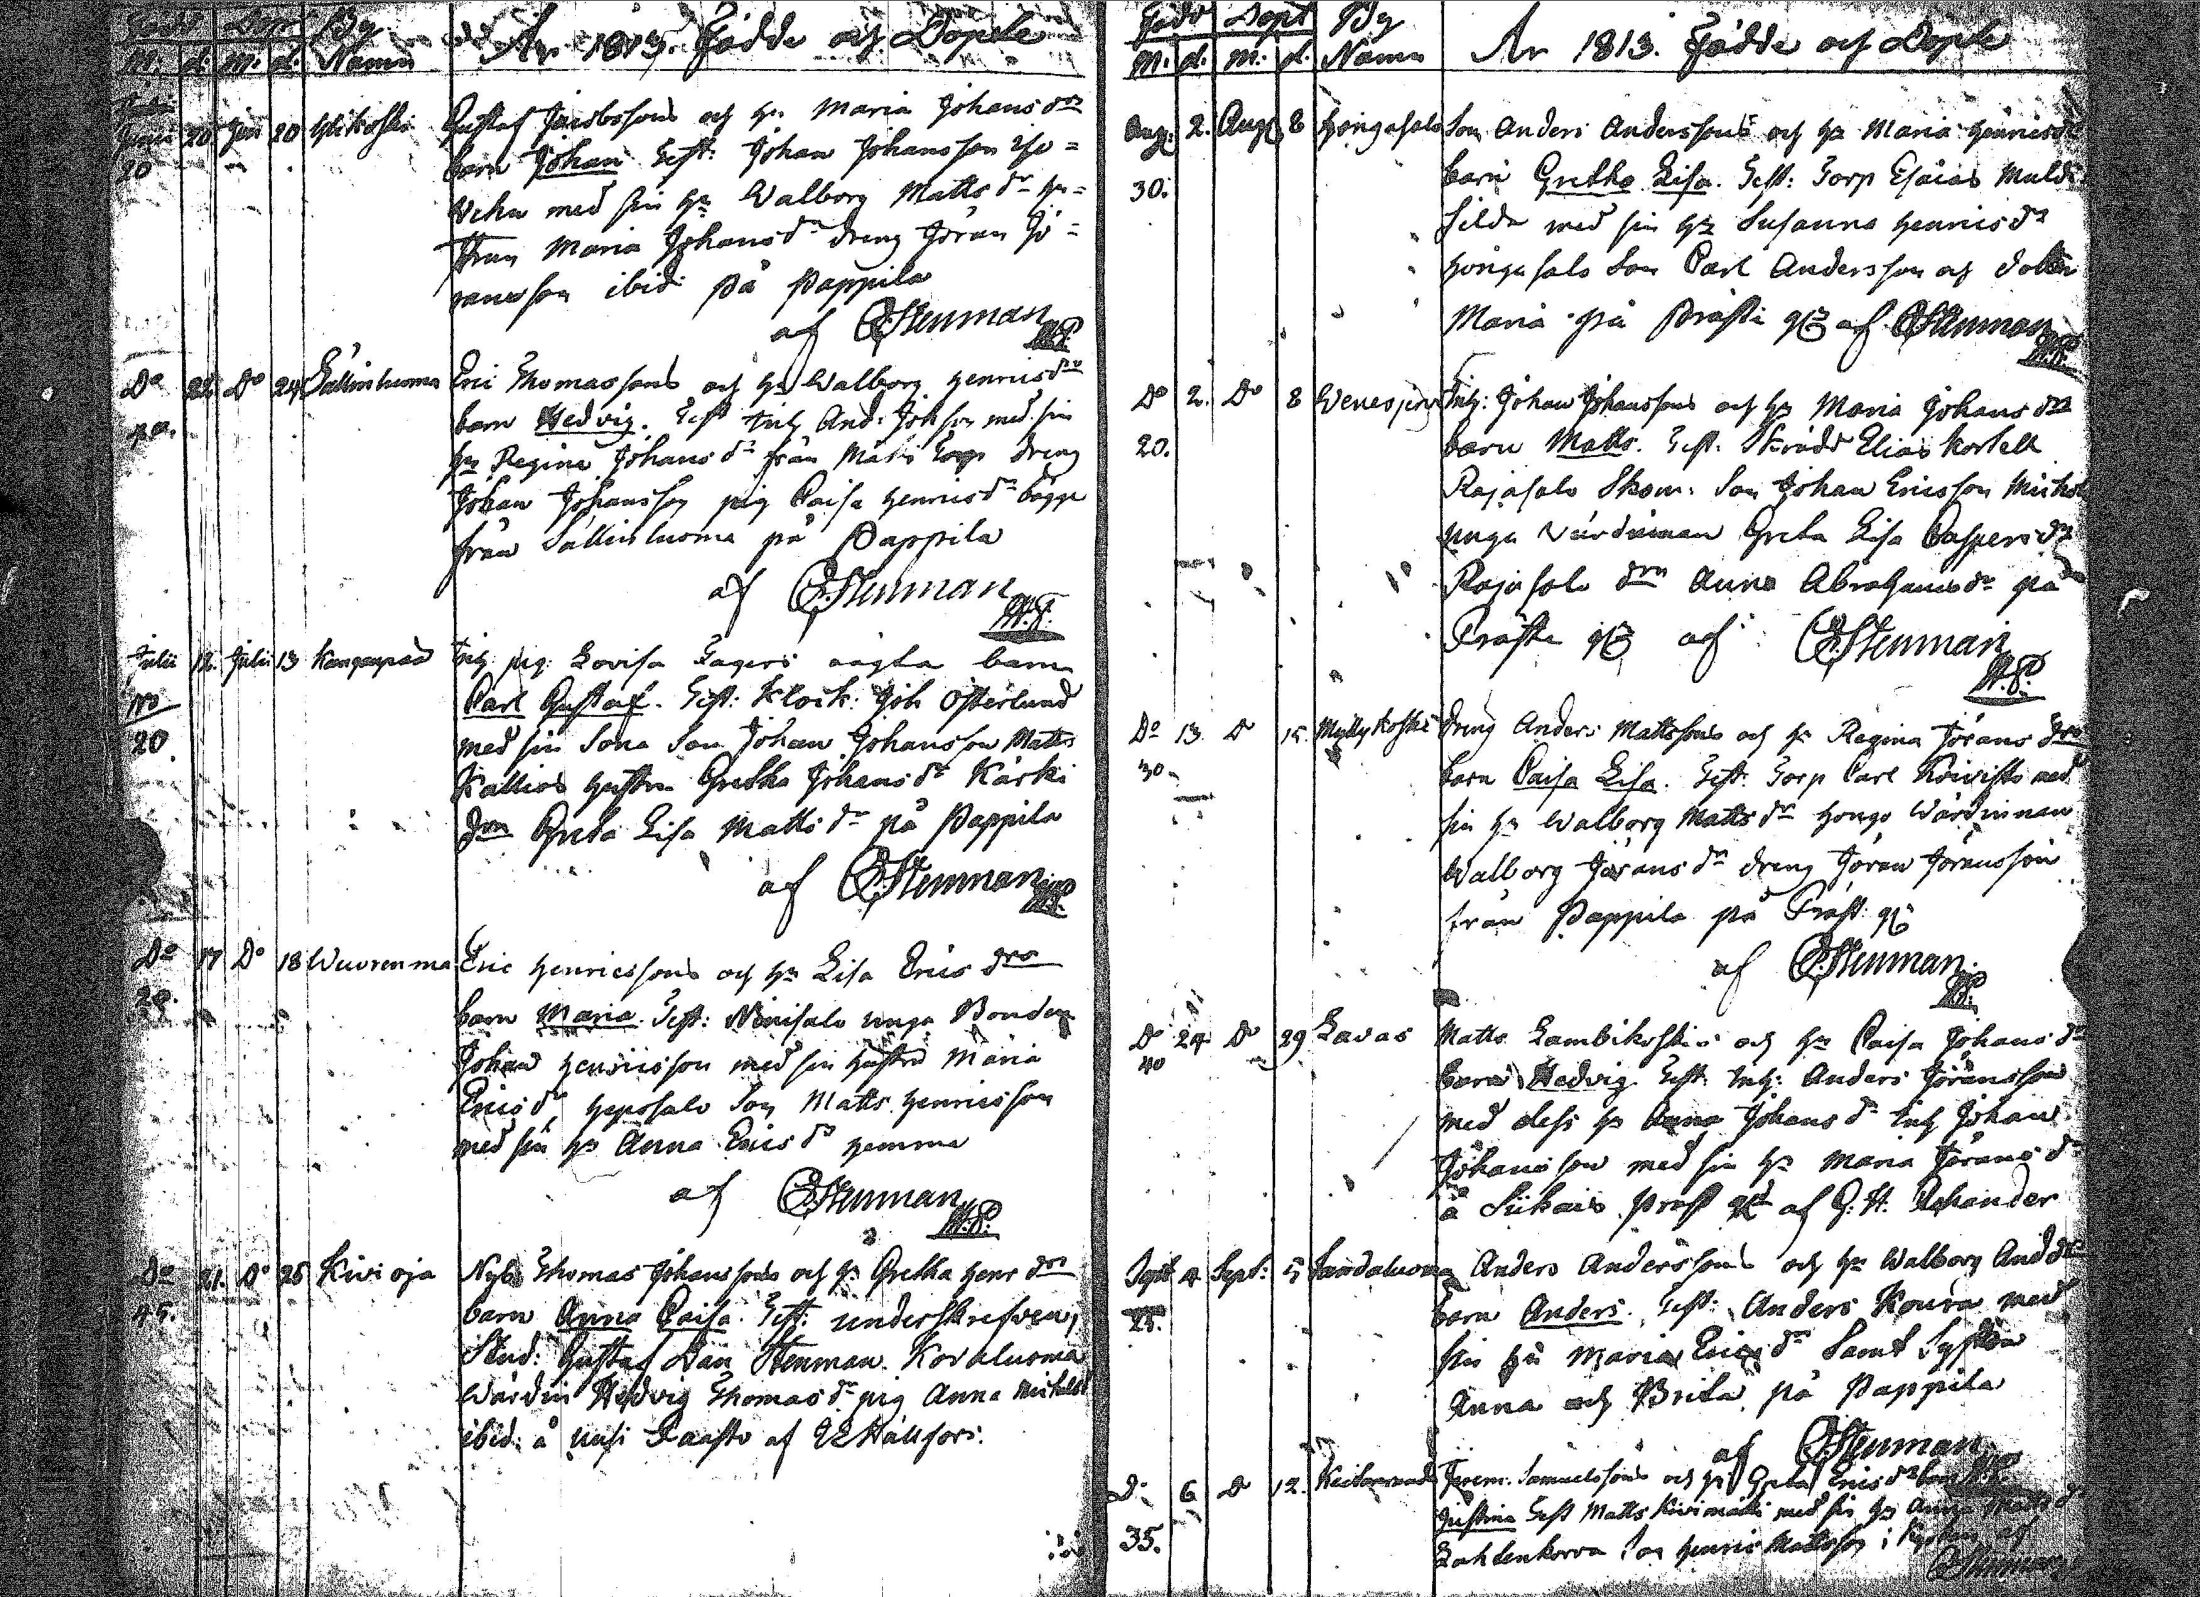 Född Döpt By År 1813. Födde och Döpte
M: d: M: d: Namn
Junii 20 Jun 20 Gustaf Jacobssons och h:u Maria Johans dr
20 barn Johan Test: Johan Johansson
med sin h:u Walborg Matts dr
Maria Johans dr dreng Jöran Jö=
ransson ibid: på Pappila
af E. Stenman
D:o 22 D:o 24 Sällinluoma Eric Thomassons och h:u Walborg Henrics dr
barn Hedvig. Test Inh And: Joh son med sin
h:u Regina Johans dr från Torp dreng
Johan Johansson pig Caisa Henrics dr bägge
från Sällinluoma på Pappila
af E. Stenman
M.P.
Julii 12. Julii 13 Kangenpää Inh pig: Lovisa oägta barn
Carl Gustaf. Test: Klock: Joh Österlund
20 med sin Sona Son Johan Johansson Matts
Kallios hustru Gretha Johans dr Kärki
Greta Lisa Matts dr på Pappila
af E. Stenman
D:o 17 D:o 18 Wuorenma Eric Henricssons och h:u Lisa Erics dr
20. barn Maria. Test: Niinisalo unga Bonden
Johan Henricsson med sin hustru Maria
Erics dr son Matts Henricsson
med sin h:u Anna Erics dr hemma
af E. Stenman
M.P.
D:o 21. D:o 25 Kivi oja Nyb: Thomas Johanssons och h:u Gretha Henr dr
45. barn Anna Caisa. Test: underskrefven,
Stud: Gustaf Dan Stenman. Kovaluoma
Wärdin Hedvig Thomas dr pig Anna Michels dr
ibid: å af
Född Döpt By År 1813. Födde och Döpte
M. d. M. d. Namn
Aug: 2. Aug 8 Hongasalo Son Anders Anderssons och h:u Maria Henrics dr
30. barn Gretha Lisa. Test: Torp Esaias
med sin h:u Susanna Henrics dr
Hongasalo Son Carl Andersson och dottren
Maria på Präste g:d af E. Stenman
D:o 2. D:o 8 Inh: Johan Johanssons och h:u Maria Johans dr
20. barn Matts. Test: Skrädd Elias Kortell
Rajasalo Skom. Son Johan Ericsson
unga Värdinnan Greta Lisa Caspers dr
Rajasalo Anna Abrahams dr på
Präste g:d af E. Stenman
M.P.
D:o 13 D:o 15 Myllykoski Dreng Anders Mattssons och h:u Regina Jörans dr
30. barn Caisa Lisa. Test: Torp Carl Koivisto med
sin h:u Walborg Matts dr Hongo Wärdinnan
Walborg Jörans dr dreng Jöran Jöransson
från Pappila på Präst: g:d
af E. Stenman
D:o 24 D:o 29 Lavas Matts Lambikoskis och h:u Caisa Johans dr
40 barn Hedvig. Test: Inh: Anders Jöransson
med dess h:u Anna Johans dr Inh Johan
Johansson med sin h:u Maria Jörans dr
å Siikais Präst g:d af G. H. Rehander
Sept 4 Sept: 5 Sandaluoma Anders Anderssons och h:u Walborg And dr
25. barn Anders. Test: Anders Koura med
sin h:u Maria Erics dr Samt Systren
Anna och Brita på Pappila
af E. Stenman
D:o 6 D:o 12. Jerem: Samuelssons och h:u Greta Erics dr barn
35. Justina Test Matts Kivimäki med sin h:u Anna Matts dr
Lahdenkorva Son Henric Mattsson i af
E. Stenman